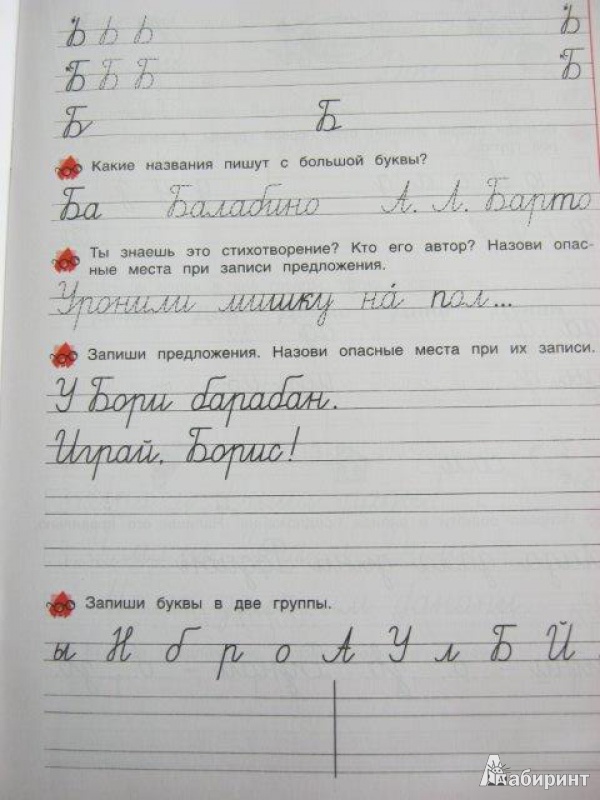 Б Б Б Б
Б Б Б Б
Б Б
Какие названия пишут с большой буквы?
Ба Балабино А. Л. Барто
Ты знаешь это стихотворение? Кто его автор? Назови опас-
ные места при записи предложения.
Уронили мишку на́ пол...
Запиши предложения. Назови опасные места при их записи.
У Бори барабан.
Играй, Борис!
Запиши буквы в две группы.
ы Н б р о А У л Б Й
Лабиринт